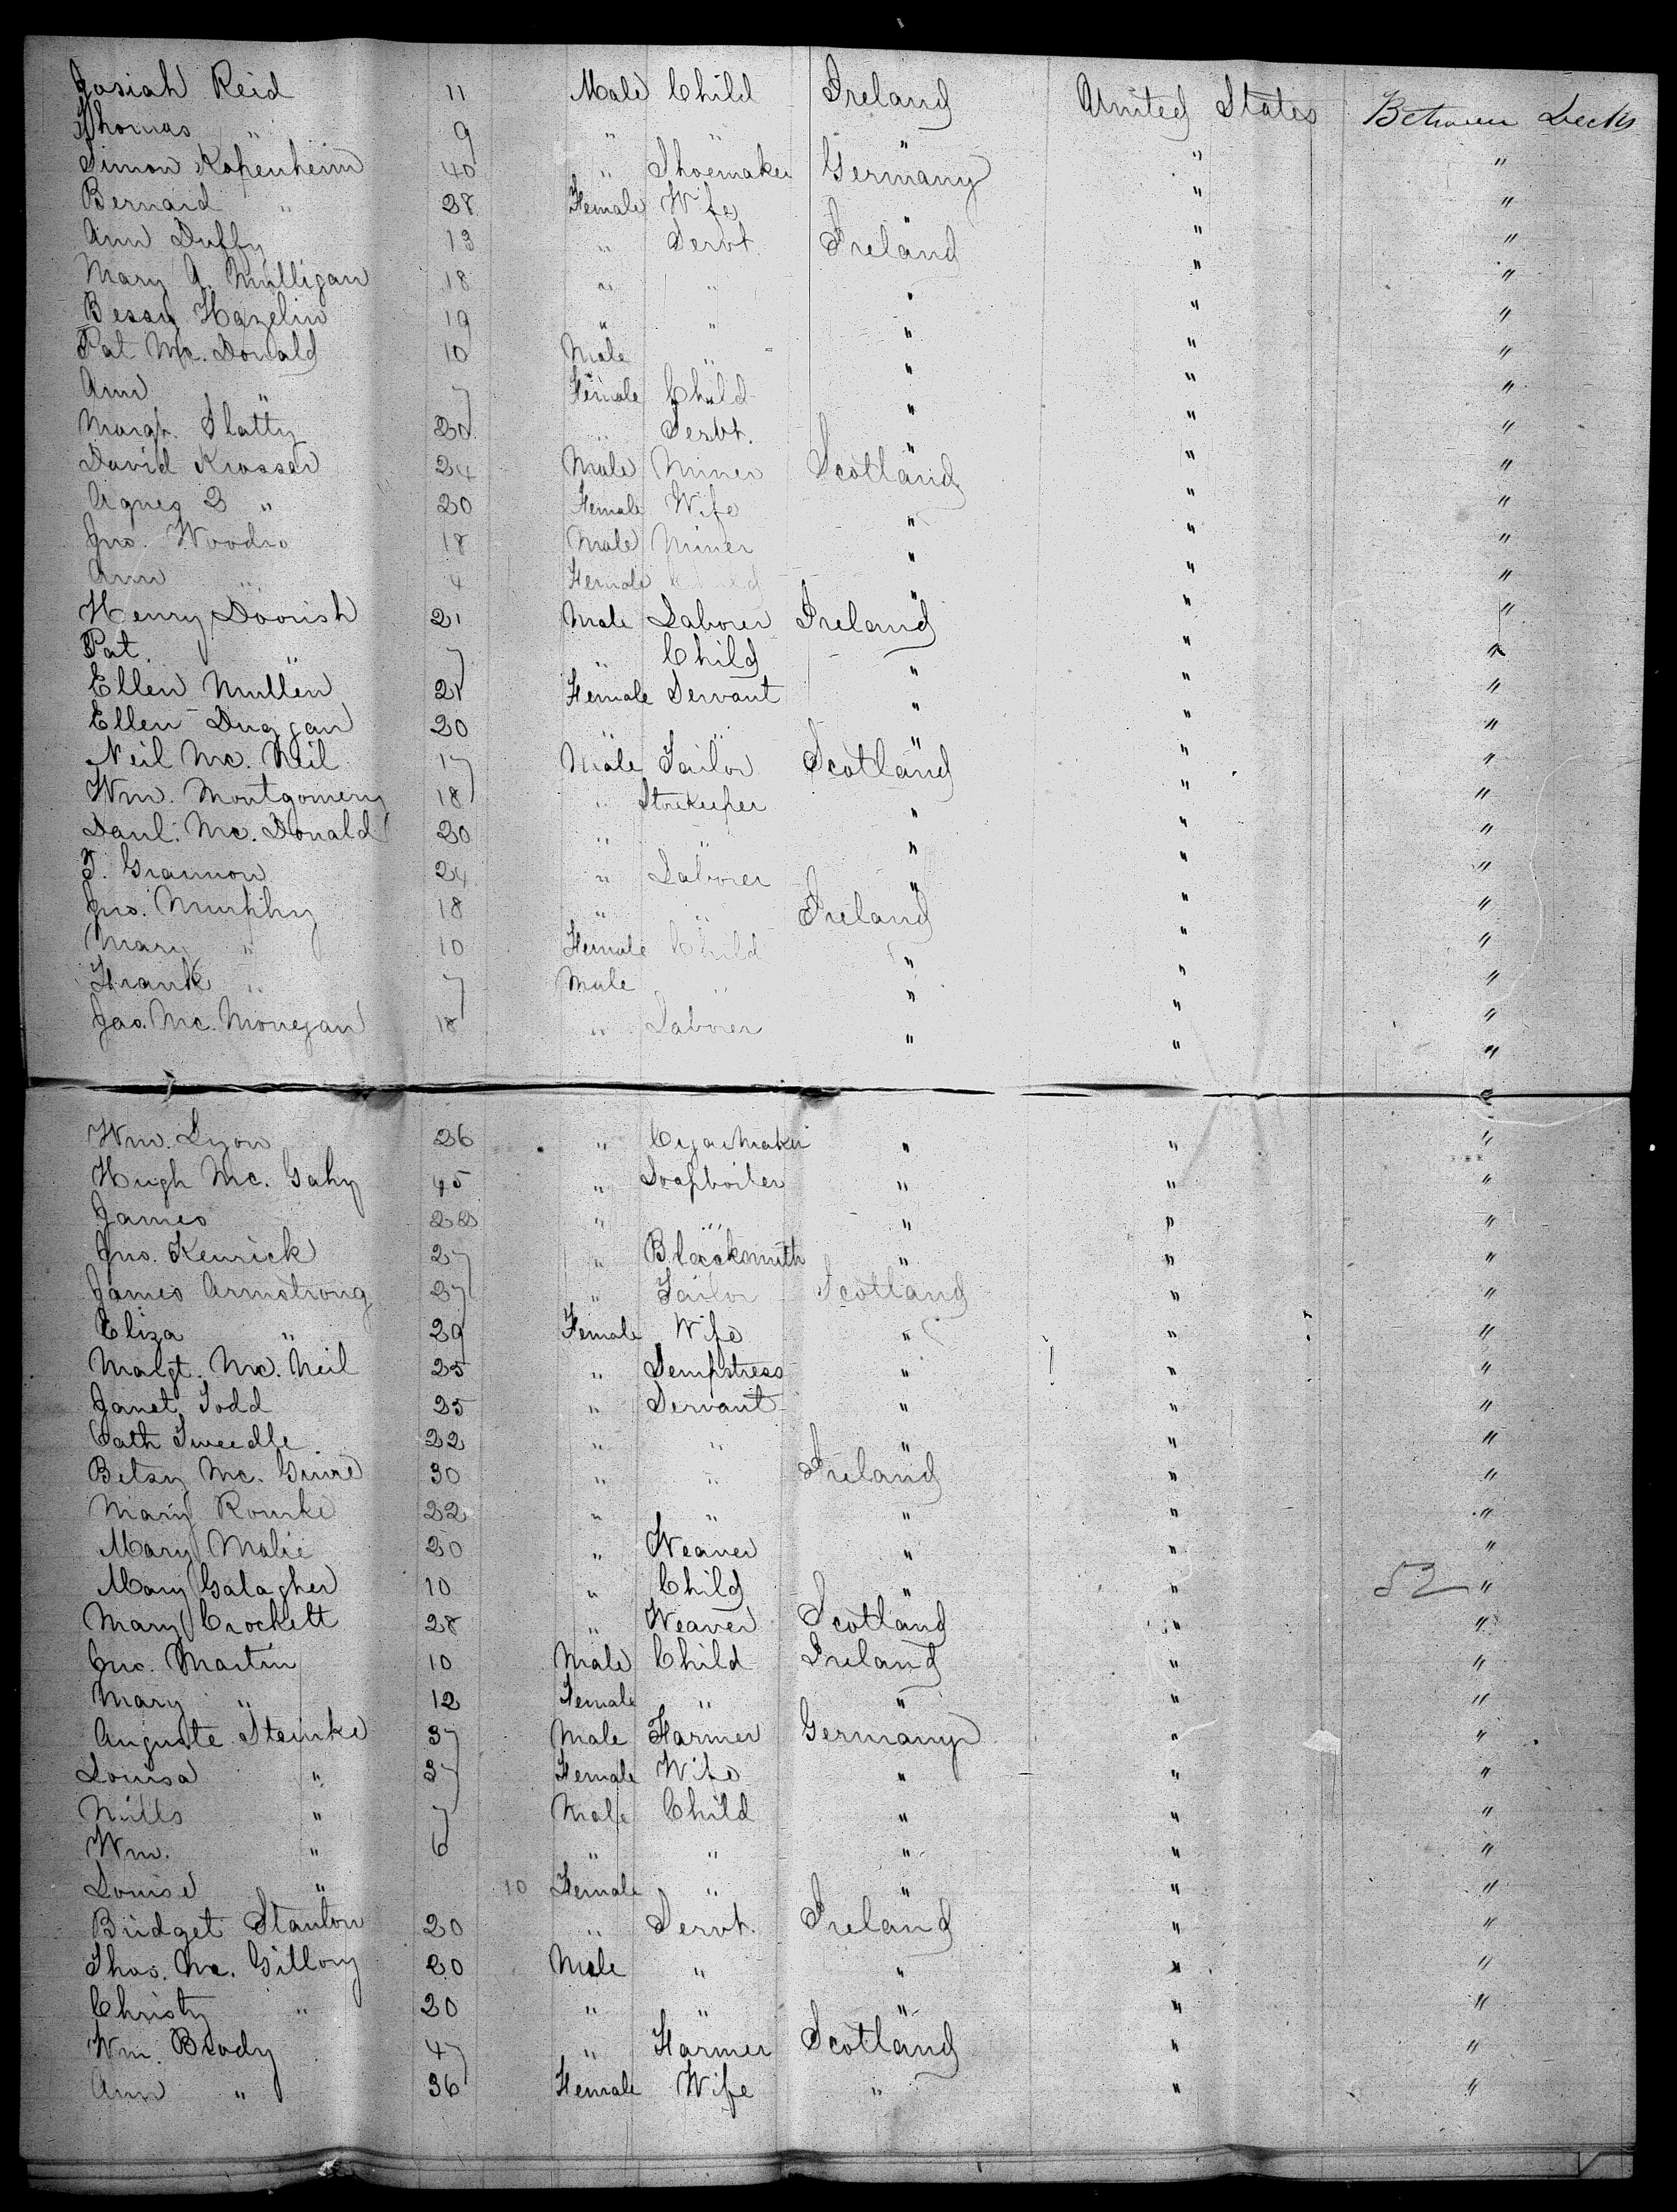 Josiah Reid 11 Male Child Ireland United States Between Decks
Thomas " 9 " " " " "
Simon Kopenheim 40 " Shoemaker Germany " "
Bernard " 28 Female Wife " " "
Ann Duffy 13 " Servt. Ireland " "
Mary A. Mulligan 18 " " " " "
Bessy Hazelin 19 " " " " "
Pat Mc. Donald 10 Male " " " "
Ann " 7 Female Child " " "
Margt. Slatty 20 " Servt. " " "
David Krosser 24 Male Miner Scotland " "
Agnes B " 20 Female Wife " " "
Jno. Woodro 18 Male Miner " " "
Ann " 4 Female Child " " "
Henry Doorish 21 Male Laborer Ireland " "
Pat. " 7 " Child " " "
Ellen Mullen 21 Female Servant " " "
Ellen Duggan 20 " " " " "
Neil Mc. Neil 17 Male Tailor Scotland " "
Wm. Montgomery 18 " Storekeeper " " "
Danl. Mc. Donald 20 " " " " "
T. Grannon 24 " Laborer " " "
Jno. Murphy 18 " " Ireland " "
Mary " 10 Female Child " " "
Frank " 7 Male " " " "
Jas. Mc. Monegan 18 " Laborer " " "
Wm. Lyon 26 " Cigar Maker " " "
Hugh Mc. Gahy 45 " Soapboiler " " "
James 22 " " " " "
Jno. Kenrick 27 " Blacksmith " " "
James Armstrong 27 " Tailor Scotland " "
Eliza " 29 Female Wife " " "
Malgt. Mc. Neil 25 " Sempstress " " "
Janet Todd 25 " Servant " " "
Cath Tweedle 22 " " " " "
Betsy Mc. Guire 30 " " Ireland " "
Mary Rourke 22 " " " " "
Mary Malie 20 " Weaver " " "
Mary Galagher 10 " Child " " 52 "
Mary Crockett 28 " Weaver Scotland " "
Jno. Martin 10 Male Child Ireland " "
Mary " 12 Female " " " "
Auguste Steinke 37 Male Farmer Germany " "
Louisa " 37 Female Wife " " "
Nills " 7 Male Child " " "
Wm. " 6 " " " " "
Louise " 10 Female " " " "
Bridget Stanton 20 " Servt. Ireland " "
Thos. Mc. Gillony 20 Male " " " "
Christy " 20 " " " " "
Wm. Brody 47 " Farmer Scotland " "
Ann " 36 Female Wife " " "